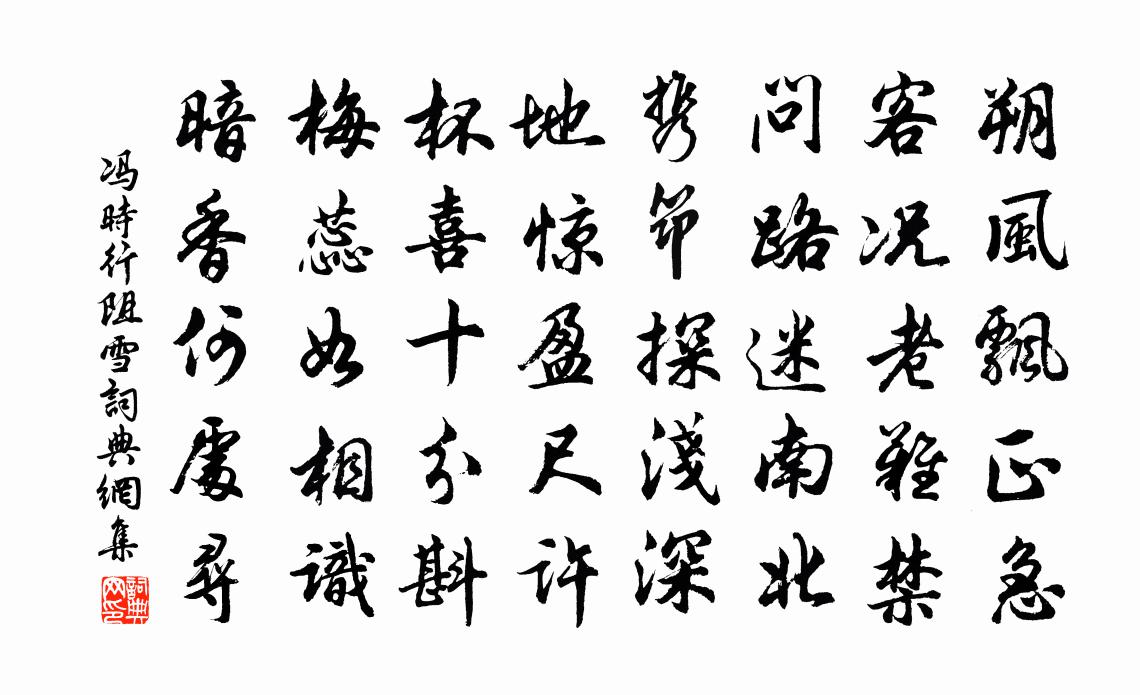 朔風飄正急
客况老難禁
問路迷南北
携笻探淺深
地惊盈尺許
杯喜十分斟
梅蕊如相識
暗香何處尋
冯時行阻雪詞典網集
詞典网印